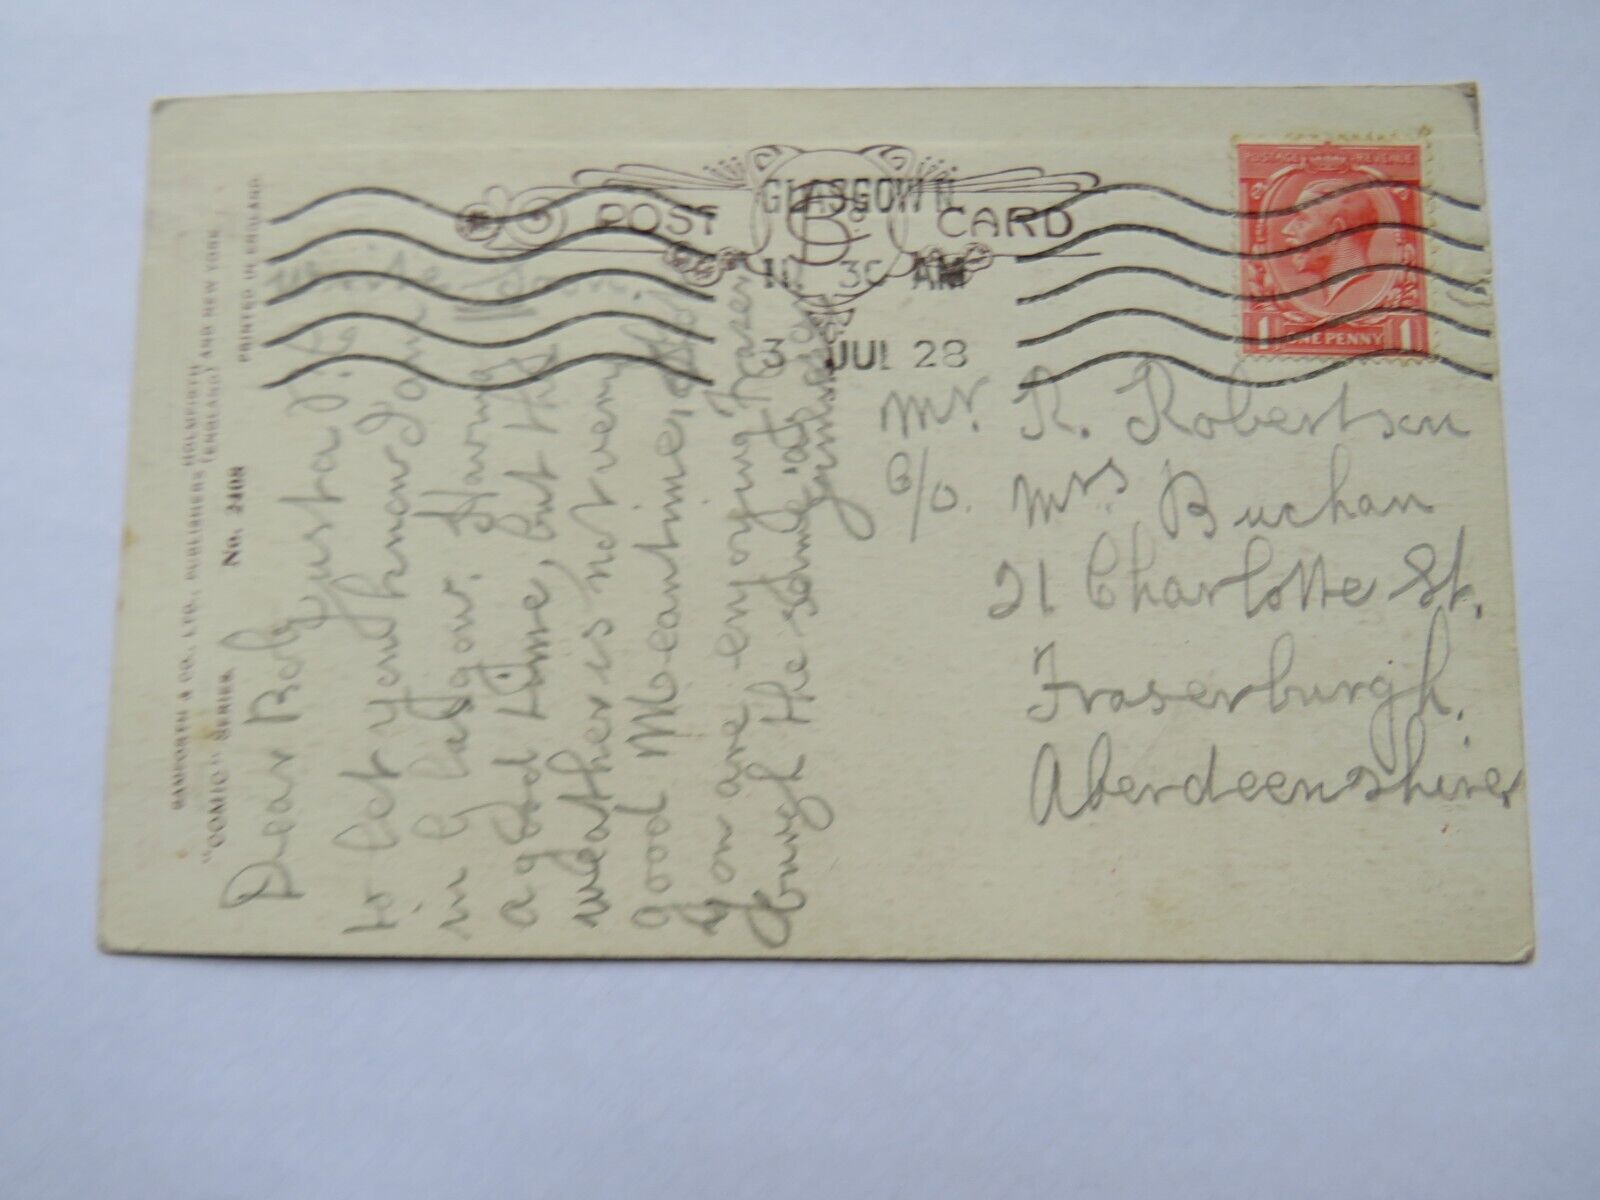 BAMFORTH & CO., LTD., PUBLISHERS HOLMFIRTH (ENGLAND) AND NEW YORK
"COMIC" SERIES. No. 2408
PRINTED IN ENGLAND
POST CARD
B & Co
GLASGOW
11. 30 AM
3 JUL 28
POSTAGE REVENUE
1 ONE PENNY 1
Write Soon.
Dear Bob, Just a
to let you know I am
in Glasgow. Having
a good time, but the
weather is not very
good Meantime,
you are enjoying Fraser
burgh the same as
Mr. R. Robertson
C/o. Mrs Buchan
21 Charlotte St.
Fraserburgh.
Aberdeenshire